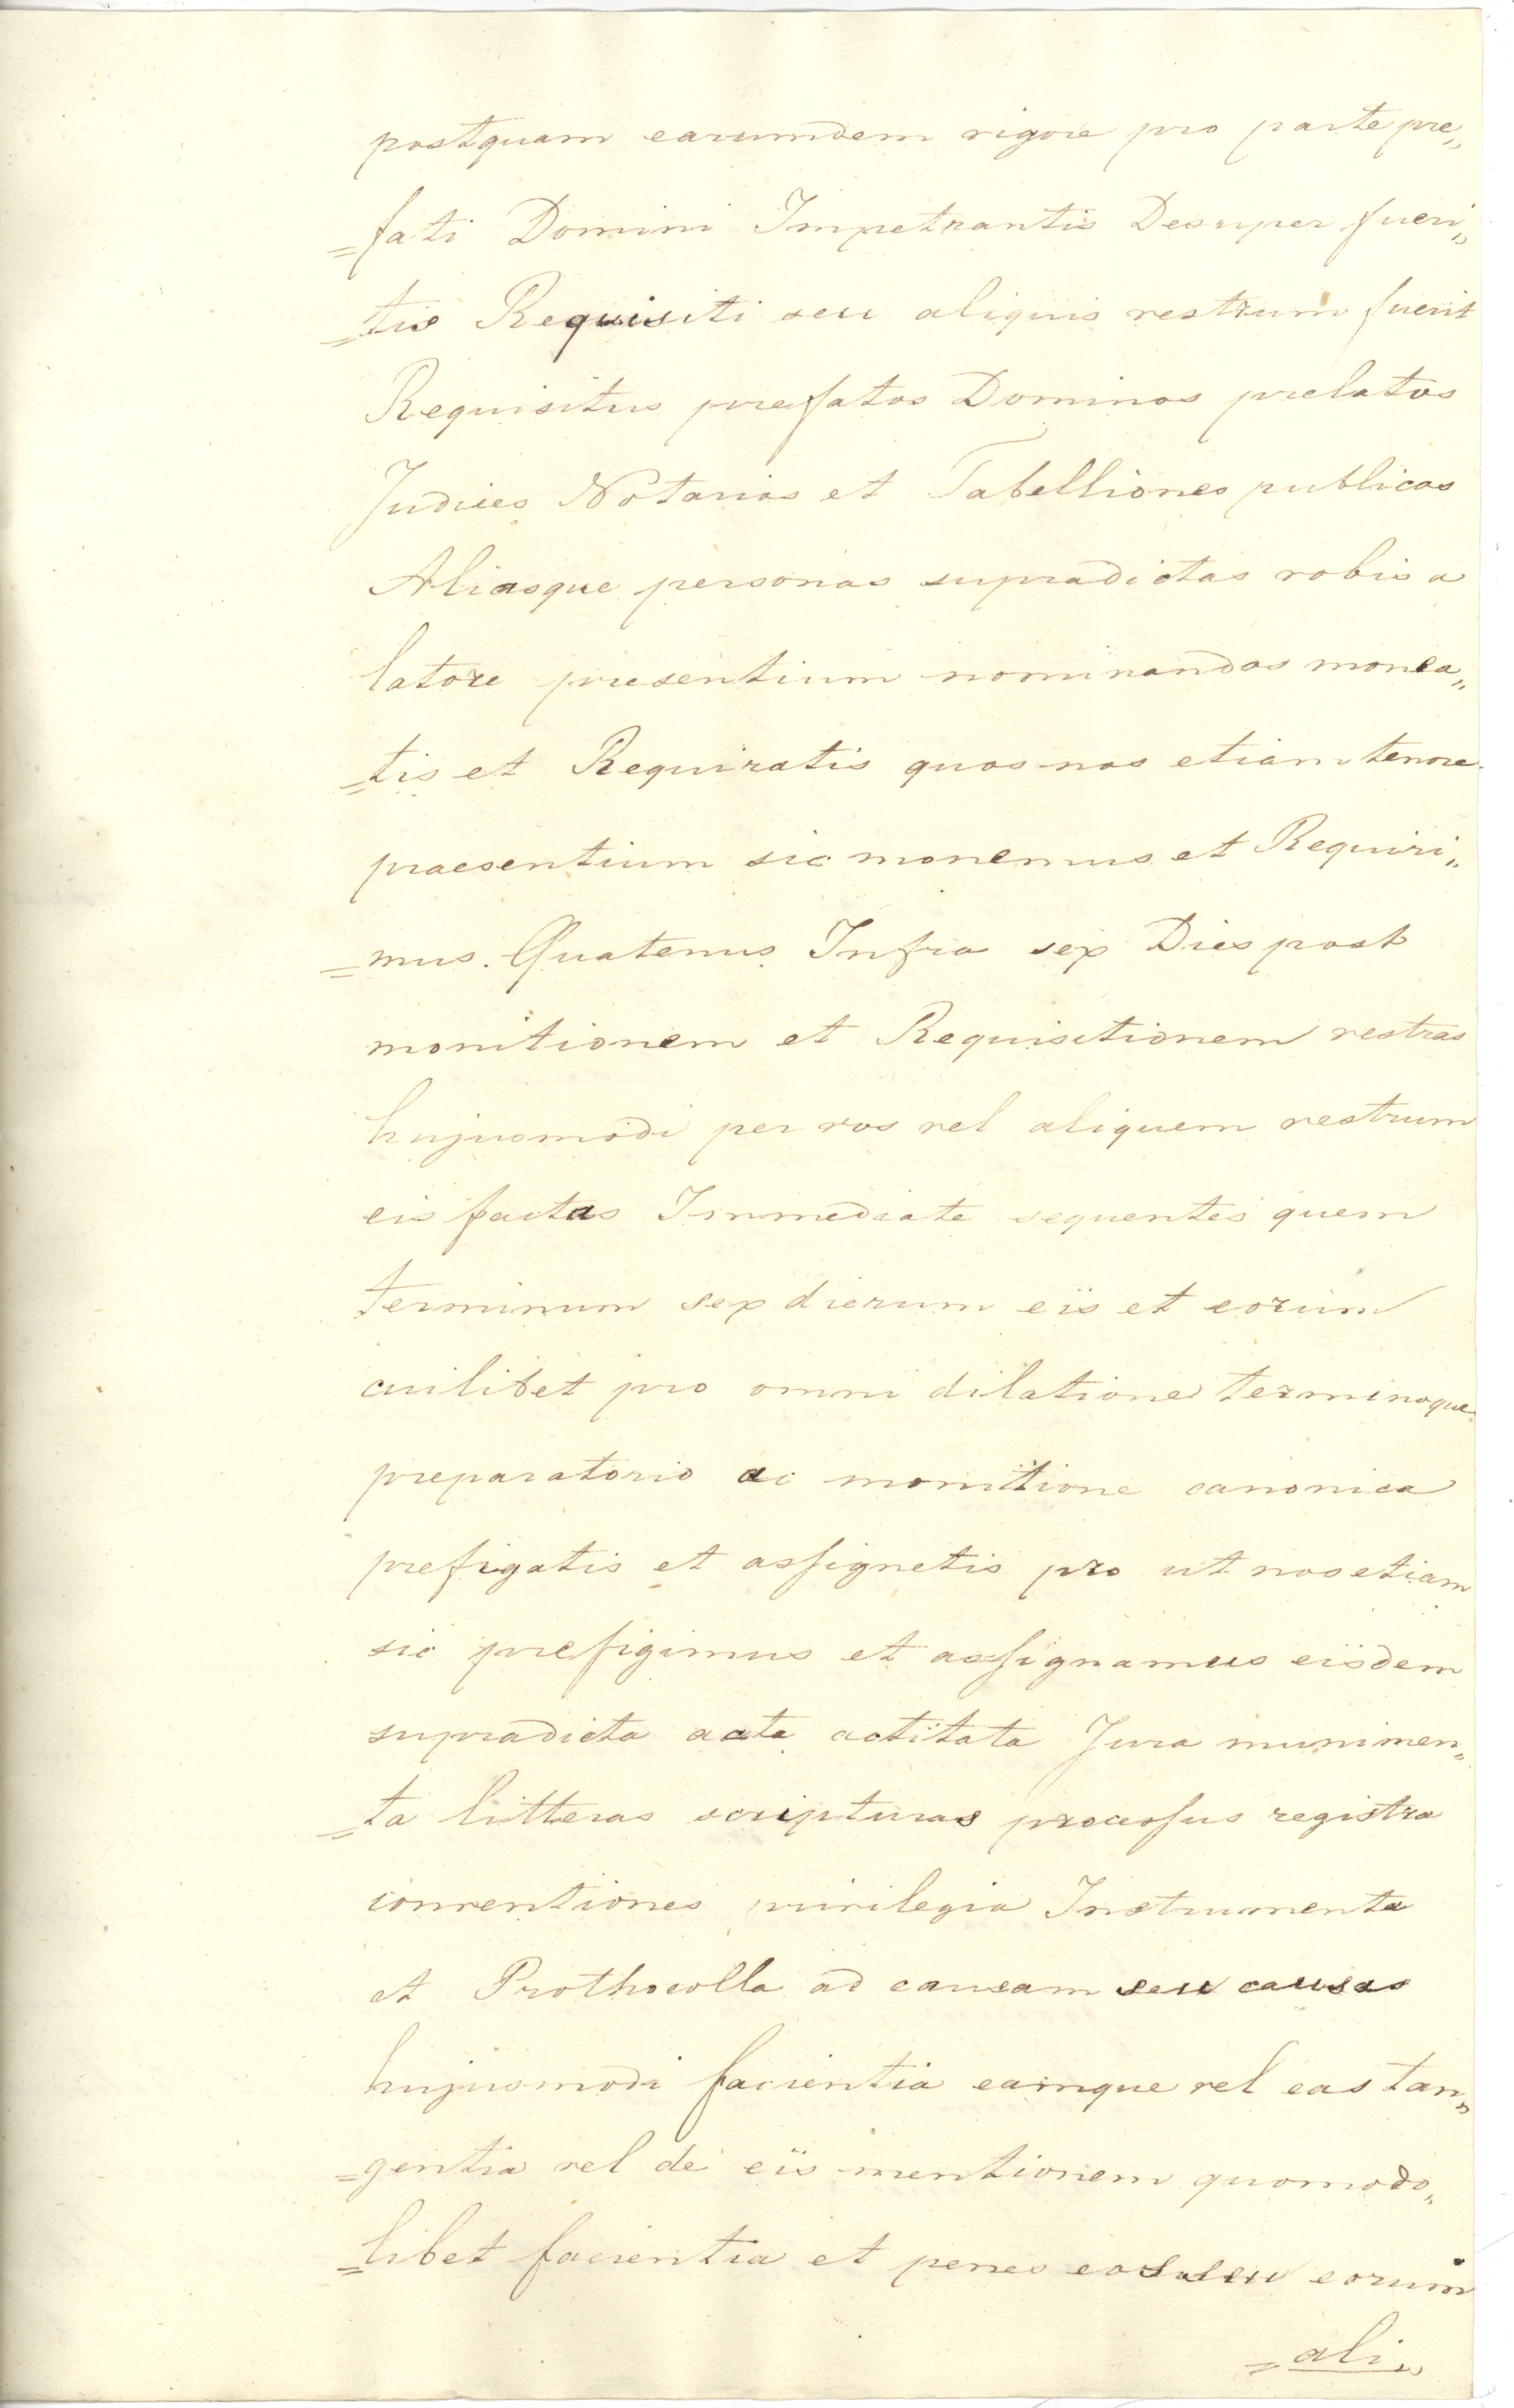 postquam earumdem vigore pro parte pre„
=fati Domini Impetrantis Desuper fueri„
=tis Requisiti seu aliquis vestrum fuerit
Requisitus prefatos Dominos prelatos
Judices Notarios et Tabelliones publicos
Aliasque personas supradictas vobis a
latore presentium nominandos monea„
=tis et Requiratis quos nos etiam tenore
praesentium sic monemus et Requiri„
=mus. Quatenus Infra sex Dies post
monitionem et Requisitionem vestras
hujusmodi per vos vel aliquem vestrum
eis factas Immediate sequentes quem
terminum sex dierum eïs et eorum
cuilibet pro omni dilatione terminoque
preparatorio ac monitione canonica
prefigatis et assignetis pro ut nos etiam
sic prefigimus et assignamus eïsdem
supradicta acta actitata Jura munimen„
=ta litteras scripturas processus registra
conventiones privilegia Instrumenta
et Prothocolla ad causam seu causas
hujusmodi facientia eamque vel eas tan„
=gentia vel de eïs mentionem quomodo„
=libet facientia et penes eos seu eorum
=ali„